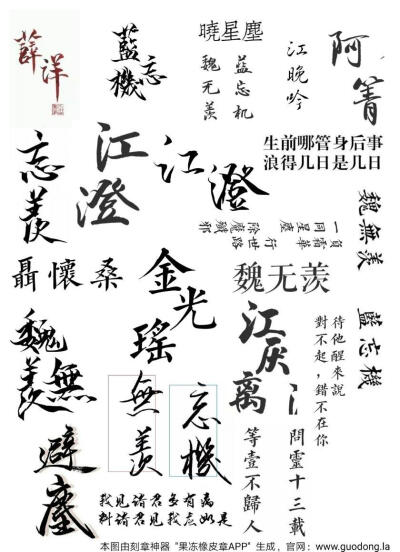 薛洋
藍忘機
曉星塵
魏无羨
蓝忘机
江晚吟
阿箐
生前哪管身后事
浪得几日是几日
忘羨
江澄
江澄
負霜華
行世路
一同星塵
除魔殲邪
魏無羨
聶懷桑
金光瑤
魏无羡
藍忘機
江厌离
待他醒來說
對不起，錯不在你
魏無羨
無羨
忘機
避塵
問靈十三載
等壹不歸人
我见诸君多有
料诸君见我应如是
本图由刻章神器“果冻橡皮章APP”生成，官网：www.guodong.la